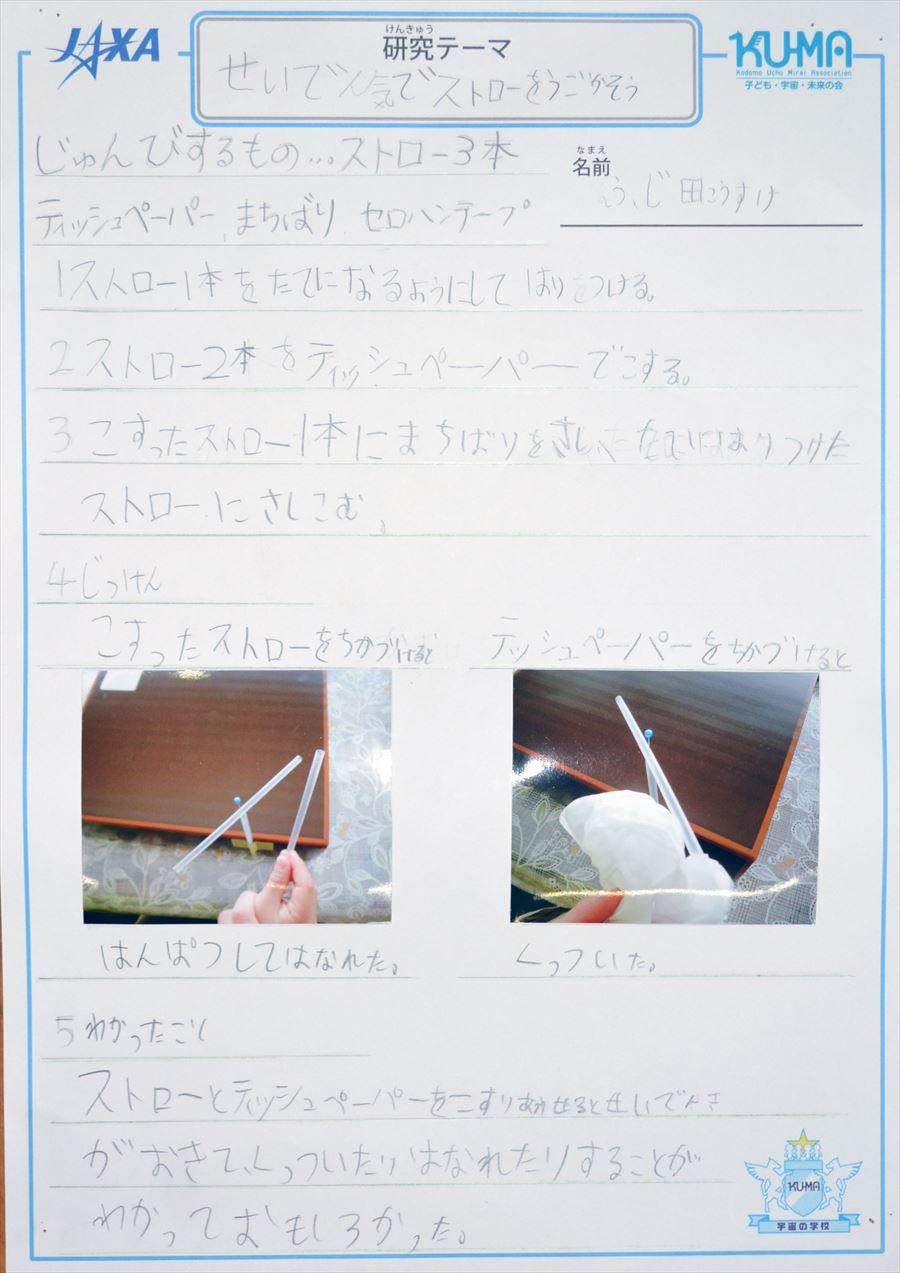 JAXA
けんきゅう
研究テーマ
せいでん気でストローをうごかそう
KU-MA
Kodomo Uchu Mirai Association
子ども・宇宙・未来の会
じゅんびするもの…ストロー3本
なまえ
名前
ふじ田こうすけ
ティッシュペーパー、まちばり、セロハンテープ
1ストロー1本をたてになるようにしてはりつける。
2ストロー2本をティッシュペーパーでこする。
3こすったストロー1本にまちばりをさし、たてにはりつけた
ストローにさしこむ。
4じっけん
こすったストローをちかづけると
テッシュペーパーをちかづけると
はんぱつしてはなれた。
くっついた。
5わかったこと
ストローとティッシュペーパーをこすりあわせるとせいでんき
がおきて、くっついたりはなれたりすることが
わかっておもしろかった。
KU-MA
宇宙の学校